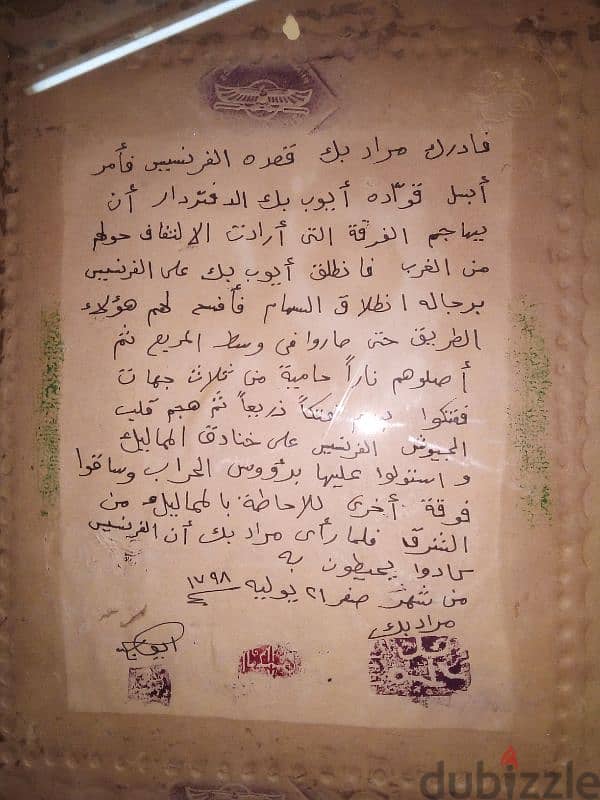 فادرك مراد بك قصده الفرنسيس فأمر
أجل قوّاده أيوب بك الدفتردار أن
يهاجم الفرقة التى أرادت الإلتفاف حولهم
من الغرب فانطلق أيوب بك على الفرنسيس
برجاله انطلاق السهام فأفسح لهم هؤلاء
الطريق حتى صاروا فى وسط المربع ثم
أصلوهم ناراً حامية من ثلاث جهات
ففتكوا بهم فتكاً ذريعاً ثم هجم قلب
الجيوش الفرنسيس على خنادق المماليك
واستولوا عليها برؤوس الحراب وساقوا
فرقة أخرى للاحاطة بالمماليك من
الشرق فلما رأى مراد بك أن الفرنسيس
كادوا يحيطون به
من شهر صفر ٢١ يوليه ١٧٩٨
مراد بك
dubizzle